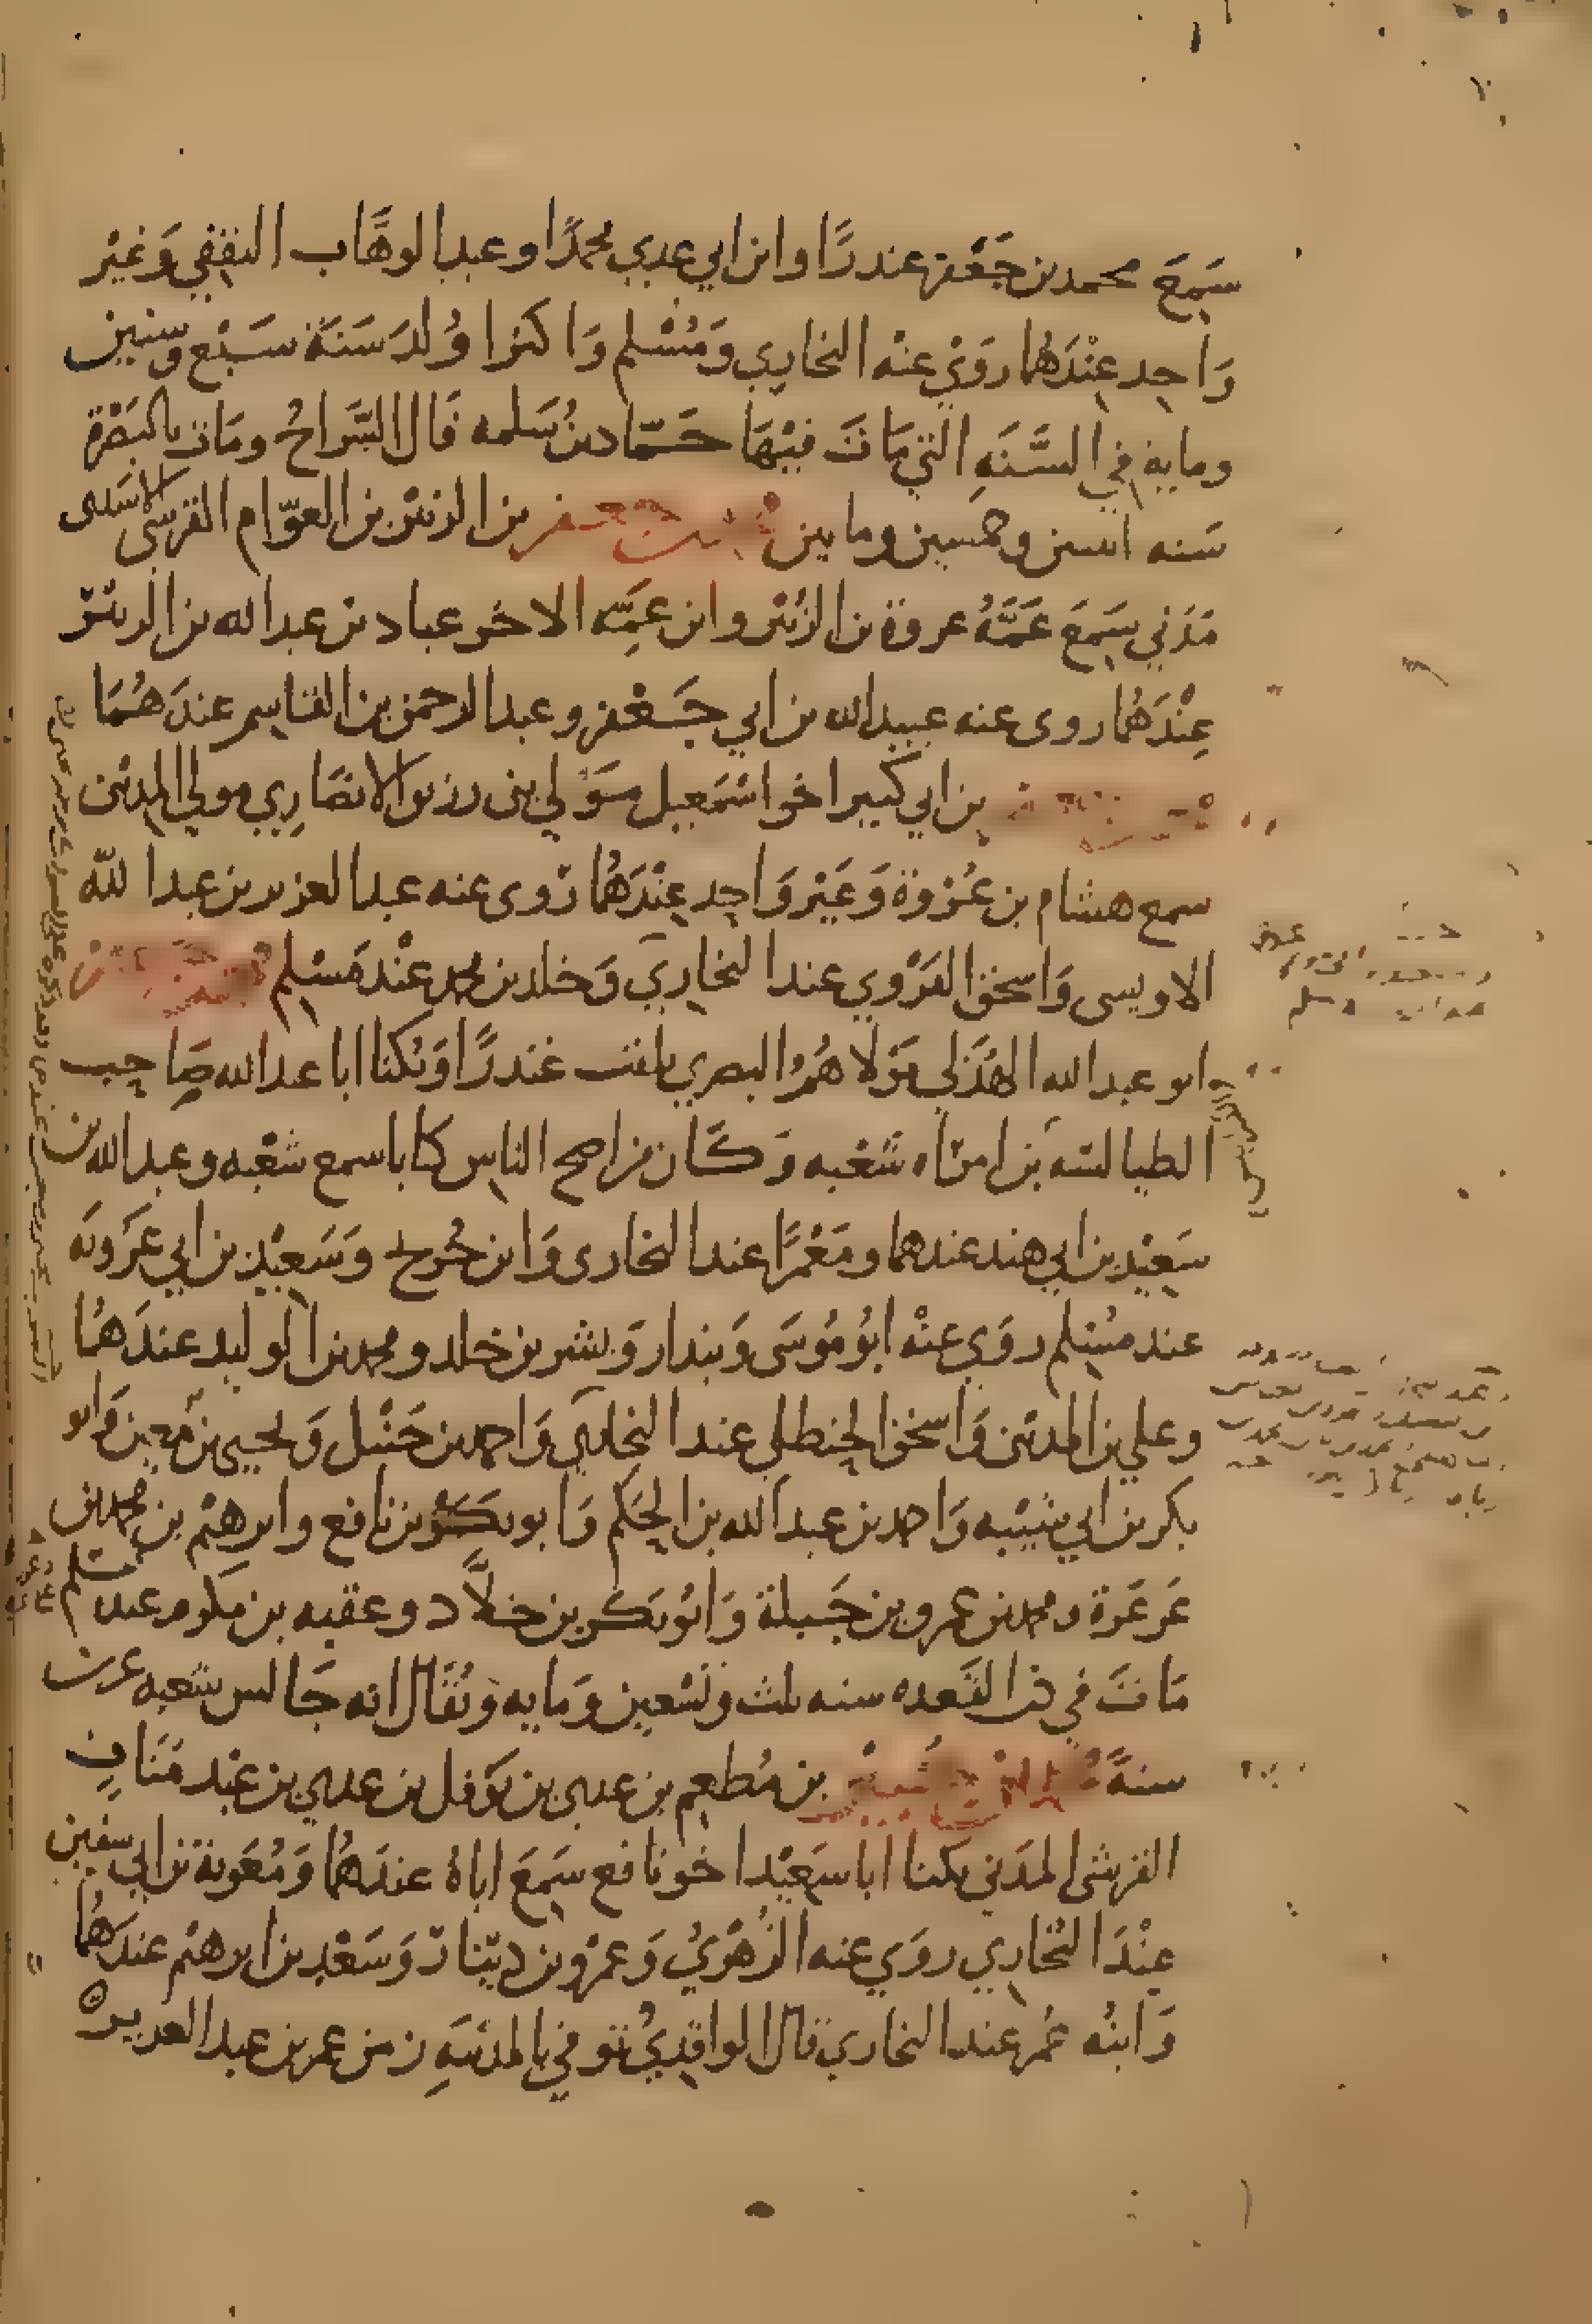 سَمِعَ محمد بن جَعْفر غندرًا وابن ابي عدي محمدًا وعبد الوهَّاب الثقفي وَغيْر
وَاحِد عِنْدَهُما روَيْ عنْه البخاري وَمُسْلم وَاكثرا وُلدَ سَنَة سَبْع وستين
ومايه في السَّنَهِ التي مَاتَ فيْهَا حَمّاد بنُ سَلمه قَال السَّراجُ ومَات بالبَصْرة
سَنه اثنتين وخمسين ومايتين محمد بن جعفر بن الزبيْر بن العوّام القرشي الاسَدى
مَدَني سَمِعَ عَمَّهُ عروة بن الزُبيْر وابن عمِّه الاخر عباد بن عبد الله بن الزبيْر
عِنْدَهُما روى عنه عبيد الله بن ابي جَعْفر وعبد الرحمن بن القاسِم عندَهُمَا
محمد بن جعفر بن ابي كثير اخو اسْمَعيل مَوْلي بني زريق الانصَارِي مولي المدينى
سمع هشام بن عُرْوة وَغَيْر وَاحِد عِنْدَهُما رَوى عنه عبد العزيز بن عبد الله
الاويسى وَاسحق الفَرْوي عند البخاريّ وَخلد بن مخلد عنْد مُسْلم محمد بن جعفر
ابو عبد الله الهُذَلي مَوْلاهُمُ البصري يلقب غندرًا وَيُكنا ابا عبد الله صَاحِب
الطيالسَه بن امرَاه شعْبه وَكَان من اصح الناس كتابا سمع شعْبه وعبد الله بن
سَعِيْد بن ابي هند عندهما ومَعْمرًا عند البخارى وَابن جُرَيج وَسَعِيْد بن ابي عَرُوبَه
عند مُسْلم روَي عنْه ابُو مُوسَى وَبندار وَبشر بن خلد ومحمد بن الوليد عندَهُما
وعلي بن المدينى وَاسحق الحنظلى عند البخاري وَاحمد بن حَنْبل وَيحيى بن مَعين وَابو
بكر بن ابي شيْبه وَاحمد بن عبد الله بن الحَكم وَابو بكر بن نافع وابرهيْم بن محمد بن
عَرعَرة ومحمد بن عمرو بن جَبلة وَابُو بَكر بن خلاَّد وعقبه بن مكرم عند مسْلم
مَاتَ في ذى القَعده سنه ثلث وَتسْعين وَمايه وَيُقَال انه جَالس شعبه عشرين
سنهً محمد بن جُبَيْر بن مُطعِم بن عدي بن نَوْفل بن عدي بن عبْد مَنَافٍ
القرشى المدَني يكنا ابا سَعِيْد اخو نافع سَمِعَ اباهُ عندَهُما وَمُعَوية بن ابي سفين
عِنْدَ البُخَارِي روَي عنه الزُهْريُ وَعمْرو بن ديْنَار وَسَعْدِ بن ابرهيْم عندَهُما
وَابنُه عُمر عند البخاري قَال الواقدِيُ تُوفي بالمدْينَهِ زمن عمر بن عبد العزيز